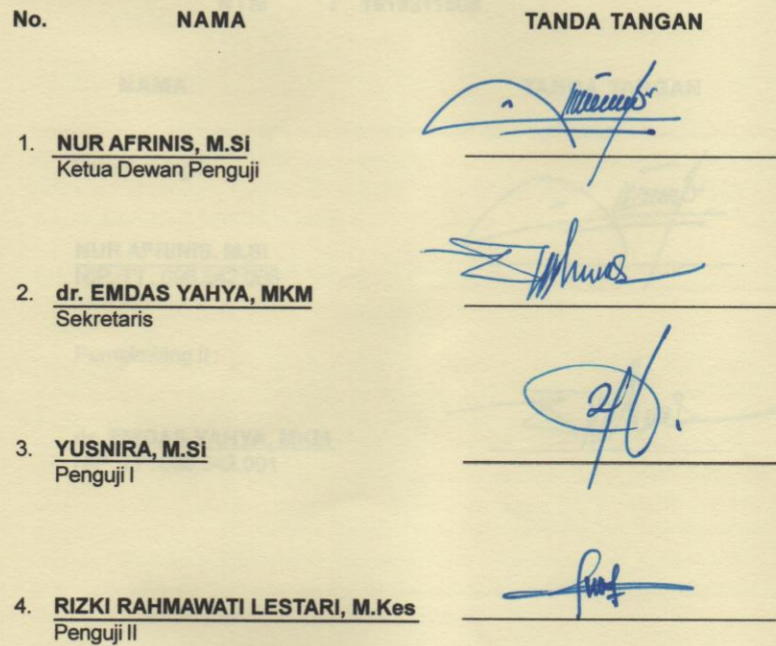 No. NAMA TANDA TANGAN
1. NUR AFRINIS, M.Si
Ketua Dewan Penguji
2. dr. EMDAS YAHYA, MKM
Sekretaris
3. YUSNIRA, M.Si
Penguji I
4. RIZKI RAHMAWATI LESTARI, M.Kes
Penguji II